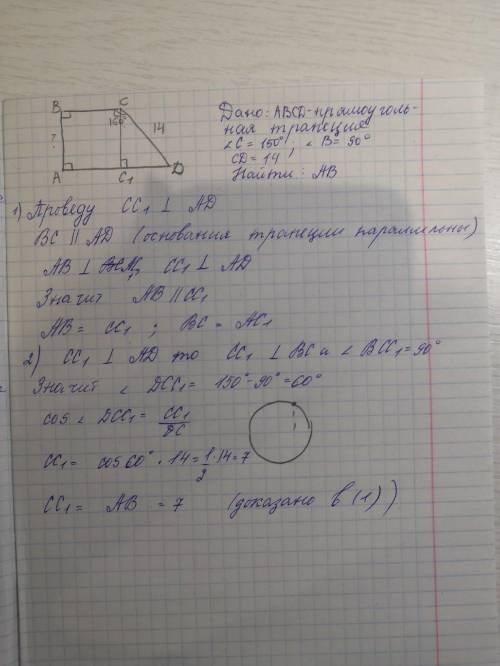 B C
150°
14
?
A C₁ D
Дано: ABCD-прямоуголь-
ная трапеция
∠C = 150°; ∠B = 90°
CD = 14
Найти: AB
1) Проведу CC₁ ⊥ AD
BC || AD (основания трапеции параллельны)
AB ⊥ CC₁ ⊥ AD
Значит AB || CC₁
AB = CC₁ ; BC = AC₁
2) CC₁ ⊥ AD то CC₁ ⊥ BC и ∠ BCC₁ = 90°
Значит ∠ DCC₁ = 150° - 90° = 60°
cos ∠ DCC₁ = CC₁/DC
CC₁ = cos 60° · 14 = 1/2 · 14 = 7
CC₁ = AB = 7 (доказано в (1))